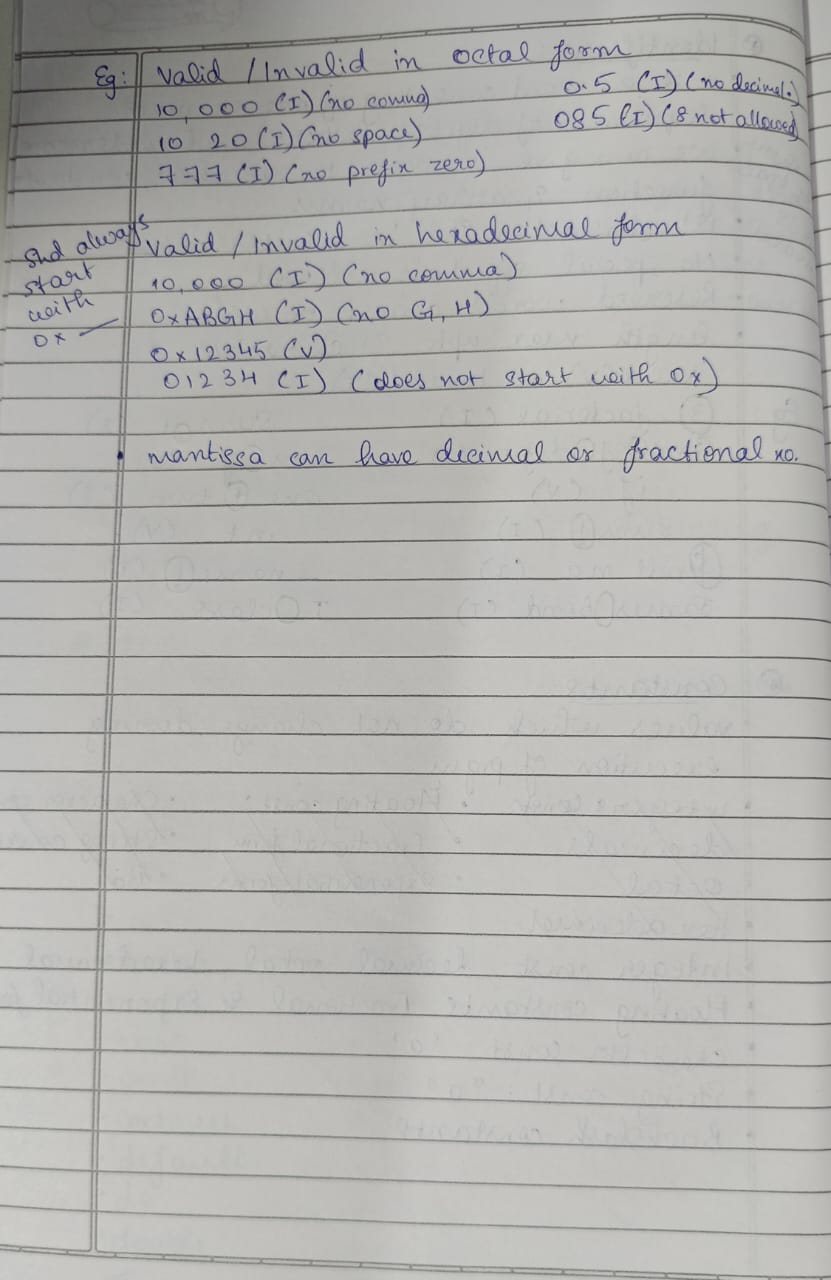 Eg: Valid / Invalid in octal form
10,000 (I) (no comma)
0.5 (I) (no decimal.)
10 20 (I) (no space)
085 (I) (8 not allowed)
777 (I) (no prefix zero)
Shd always
start
with
0x —
Valid / Invalid in hexadecimal form
10,000 (I) (no comma)
0xABGH (I) (no G, H)
0x12345 (V)
01234 (I) (does not start with 0x)
• mantissa can have decimal or fractional no.